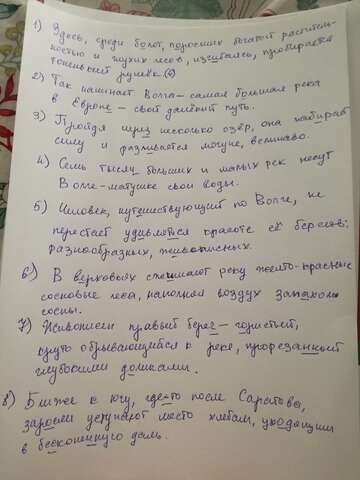 1) Здесь, среди болот, поросших богатой раститель-
ностью и глухих лесов, изгибаясь, пробирается
тоненький ручеёк.(6)
2) Так начинает Волга – самая большая река
в Европе – свой далёкий путь.
3) Пройдя через несколько озёр, она набирает
силу и разливается могуче, величаво.
4) Семь тысяч больших и малых рек несут
Волге-матушке свои воды.
5) Человек, путешествующий по Волге, не
перестаёт удивляться красоте её берегов:
разнообразных, живописных.
6) В верховьях стесняют реку желто-красные
сосновые леса, наполняя воздух запахом
сосны.
7) Живописен правый берег – гористый,
круто обрывающийся к реке, прорезанный
глубокими долинами.
8) Ближе к югу, где-то после Саратова,
заросли уступают место хлебам, уходящим
в бесконечную даль.